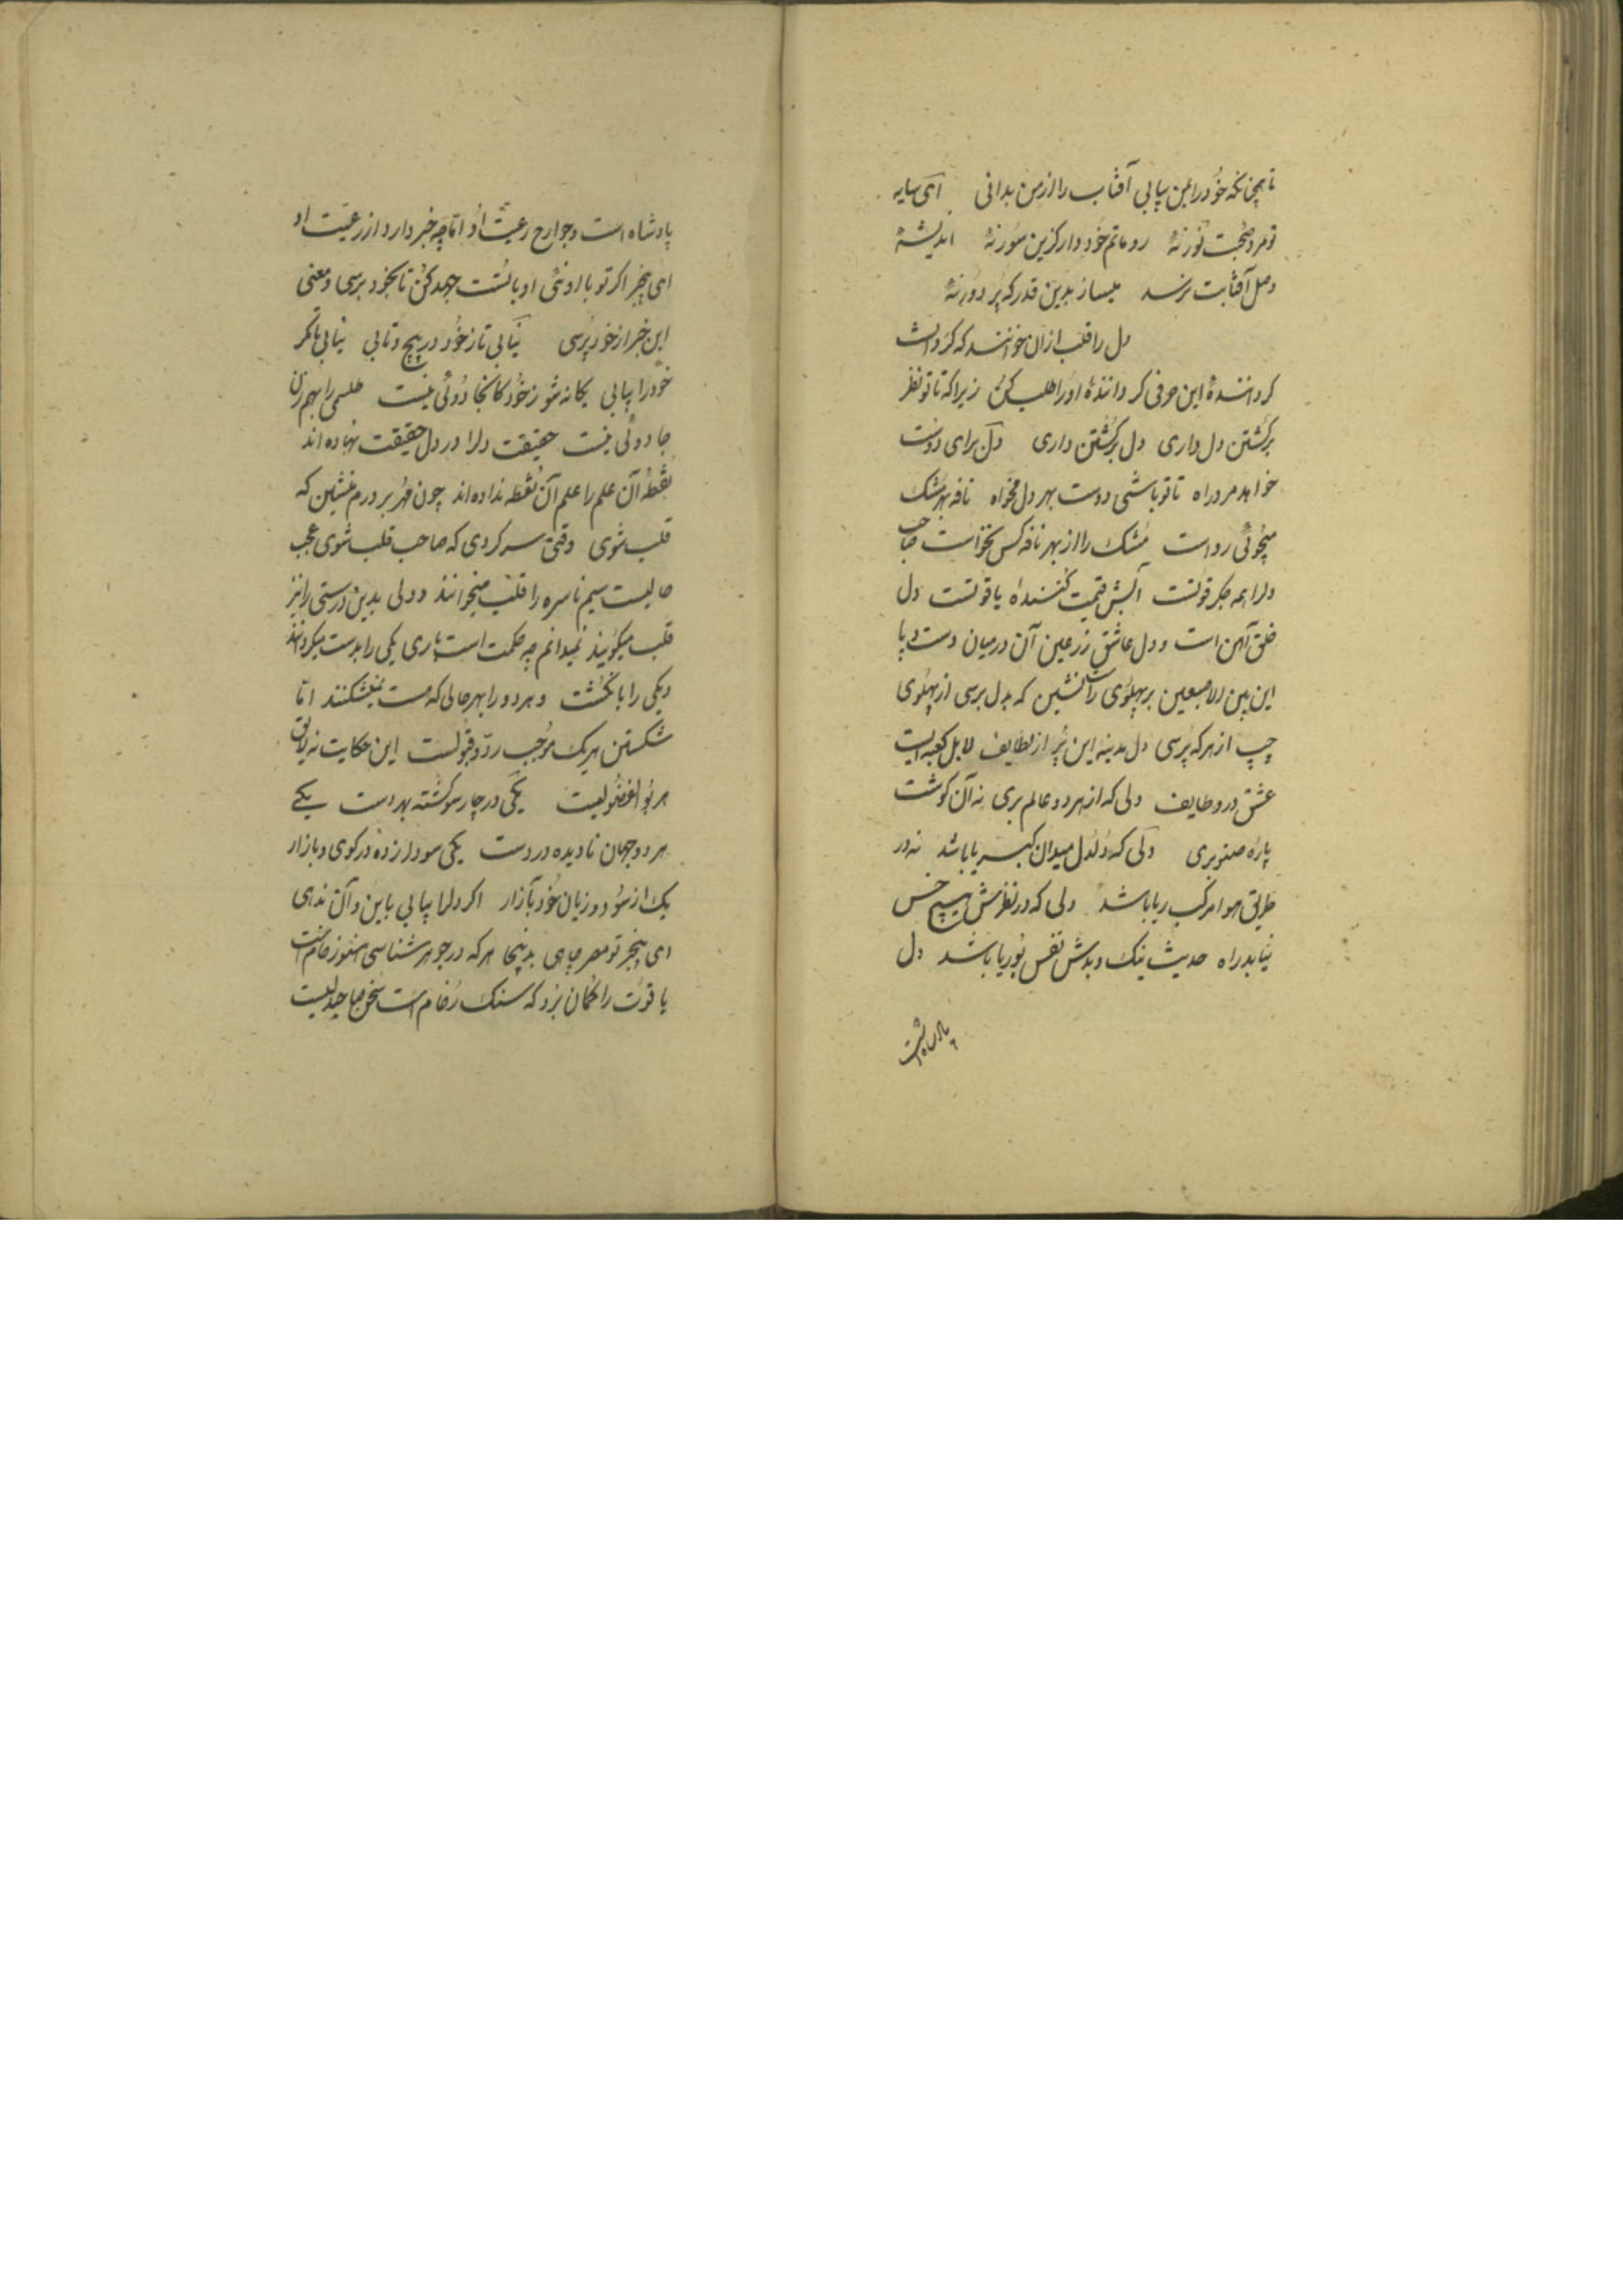 تا همچنانکه خود را عین بیابی آفتاب را از من بدانی ای سایه
تو مرد صحبت نور نۀ رو ماتم خود دار کزین سور نۀ اندیشۀ
وصل آفتابت نرسد میساز بدین قدر که پر دور نۀ
دل را قلب ازان خوانند که گردانست
گردانندۀ این حرفی گردانندۀ او را طلب کن زیرا که تا تو نظر
برگشتن دل داری دل برگشتن داری دل برای دوست
خواهد مرد راه تا تو باشی دوست بهر دل مخواه نافه بهر مشک
میجوئی رواست مشک را از بهر نافه کس نخواست صاحب
دل را همه جگر قوتست آتش قیمت کنندۀ یاقوتست دل
خلق آهن است و دل عاشق زر عین آن در میان دست و پا
این بین الاصبعین بر پهلوی راست نشین که بدل برسی از پهلوی
چپ از هر که پرسی دل مدینه این پر از لطایف لا بل کعبه ایست
عشق درو طایف دلی که از هر دو عالم بری نه آن گوشت
پارۀ صنوبری دلی که دلدل میدان کبریا باشد نه در
طریق هوا مرکب ریا باشد دلی که در نظرش هیچ خس
نیابد راه حدیث نیک و بدش نقس بوریا باشد دل
پادشاهست
پادشاه است و جوارح رعیت او اما چه خبر دارد از رعیت او
ای بیخبر اگر تو با اوئی او با تست جهد کن تا بخود برسی و معنی
این خبر از خود پرسی نیابی تا ز خود در پیچ و تابی نیابی تا مگر
خود را بیابی یگانه شو ز خود کانجا دوئی نیست طلسمی را بهم زن
جادوئی نیست حقیقت دل را در دل حقیقت نهاده اند
نقطۀ آن علم را علم آن نقطه نداده اند چون مهر بر درم منشین که
قلب شوی وقتی سره گردی که صاحب قلب شوی عجب
حالیست سیم ناسره را قلب میخوانند و دلی بدین درستی را نیز
قلب میگویند نمیدانم چه حکمت است باری یکی را بدست میگردانند
و یکی را بانگشت و هر دو را بهر حالی که هست میشکنند اما
شکستن هر یک موجب رد و قبولست این حکایت نه لایق
هر بوالفضولیست یکی در چار سو گشته بهر دست یکی
هر دو جهان نادیده در دست یکی سودا زده در کوی و بازار
یک از سود و زیان خود بآزار اگر دل را بیابی باین و آن ندهی
ای بیخبر تو مصر جاهی بدینجا هر که در جوهر شناسی هنوز خام است
یاقوت را گمان برد که سنگ رخام است سخن صاحبدلیست